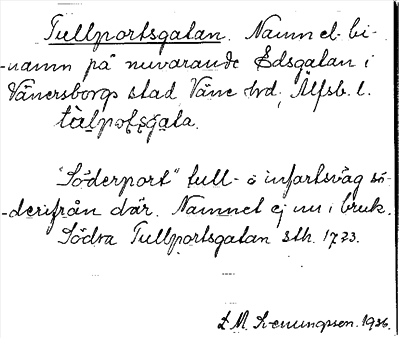 Tullportsgatan. Namnet bi-
-namn på nuvarande Edsgatan i
Vänersborgs stad Väne hrd, Älfsb. l.
tàlpoŧsgàta.
"Söderport" tull- o infartsväg sö-
-derifrån där. Namnet ej nu i bruk.
Södra Tullportsgatan sth. 1723.
L M. Svenungsson. 1936.